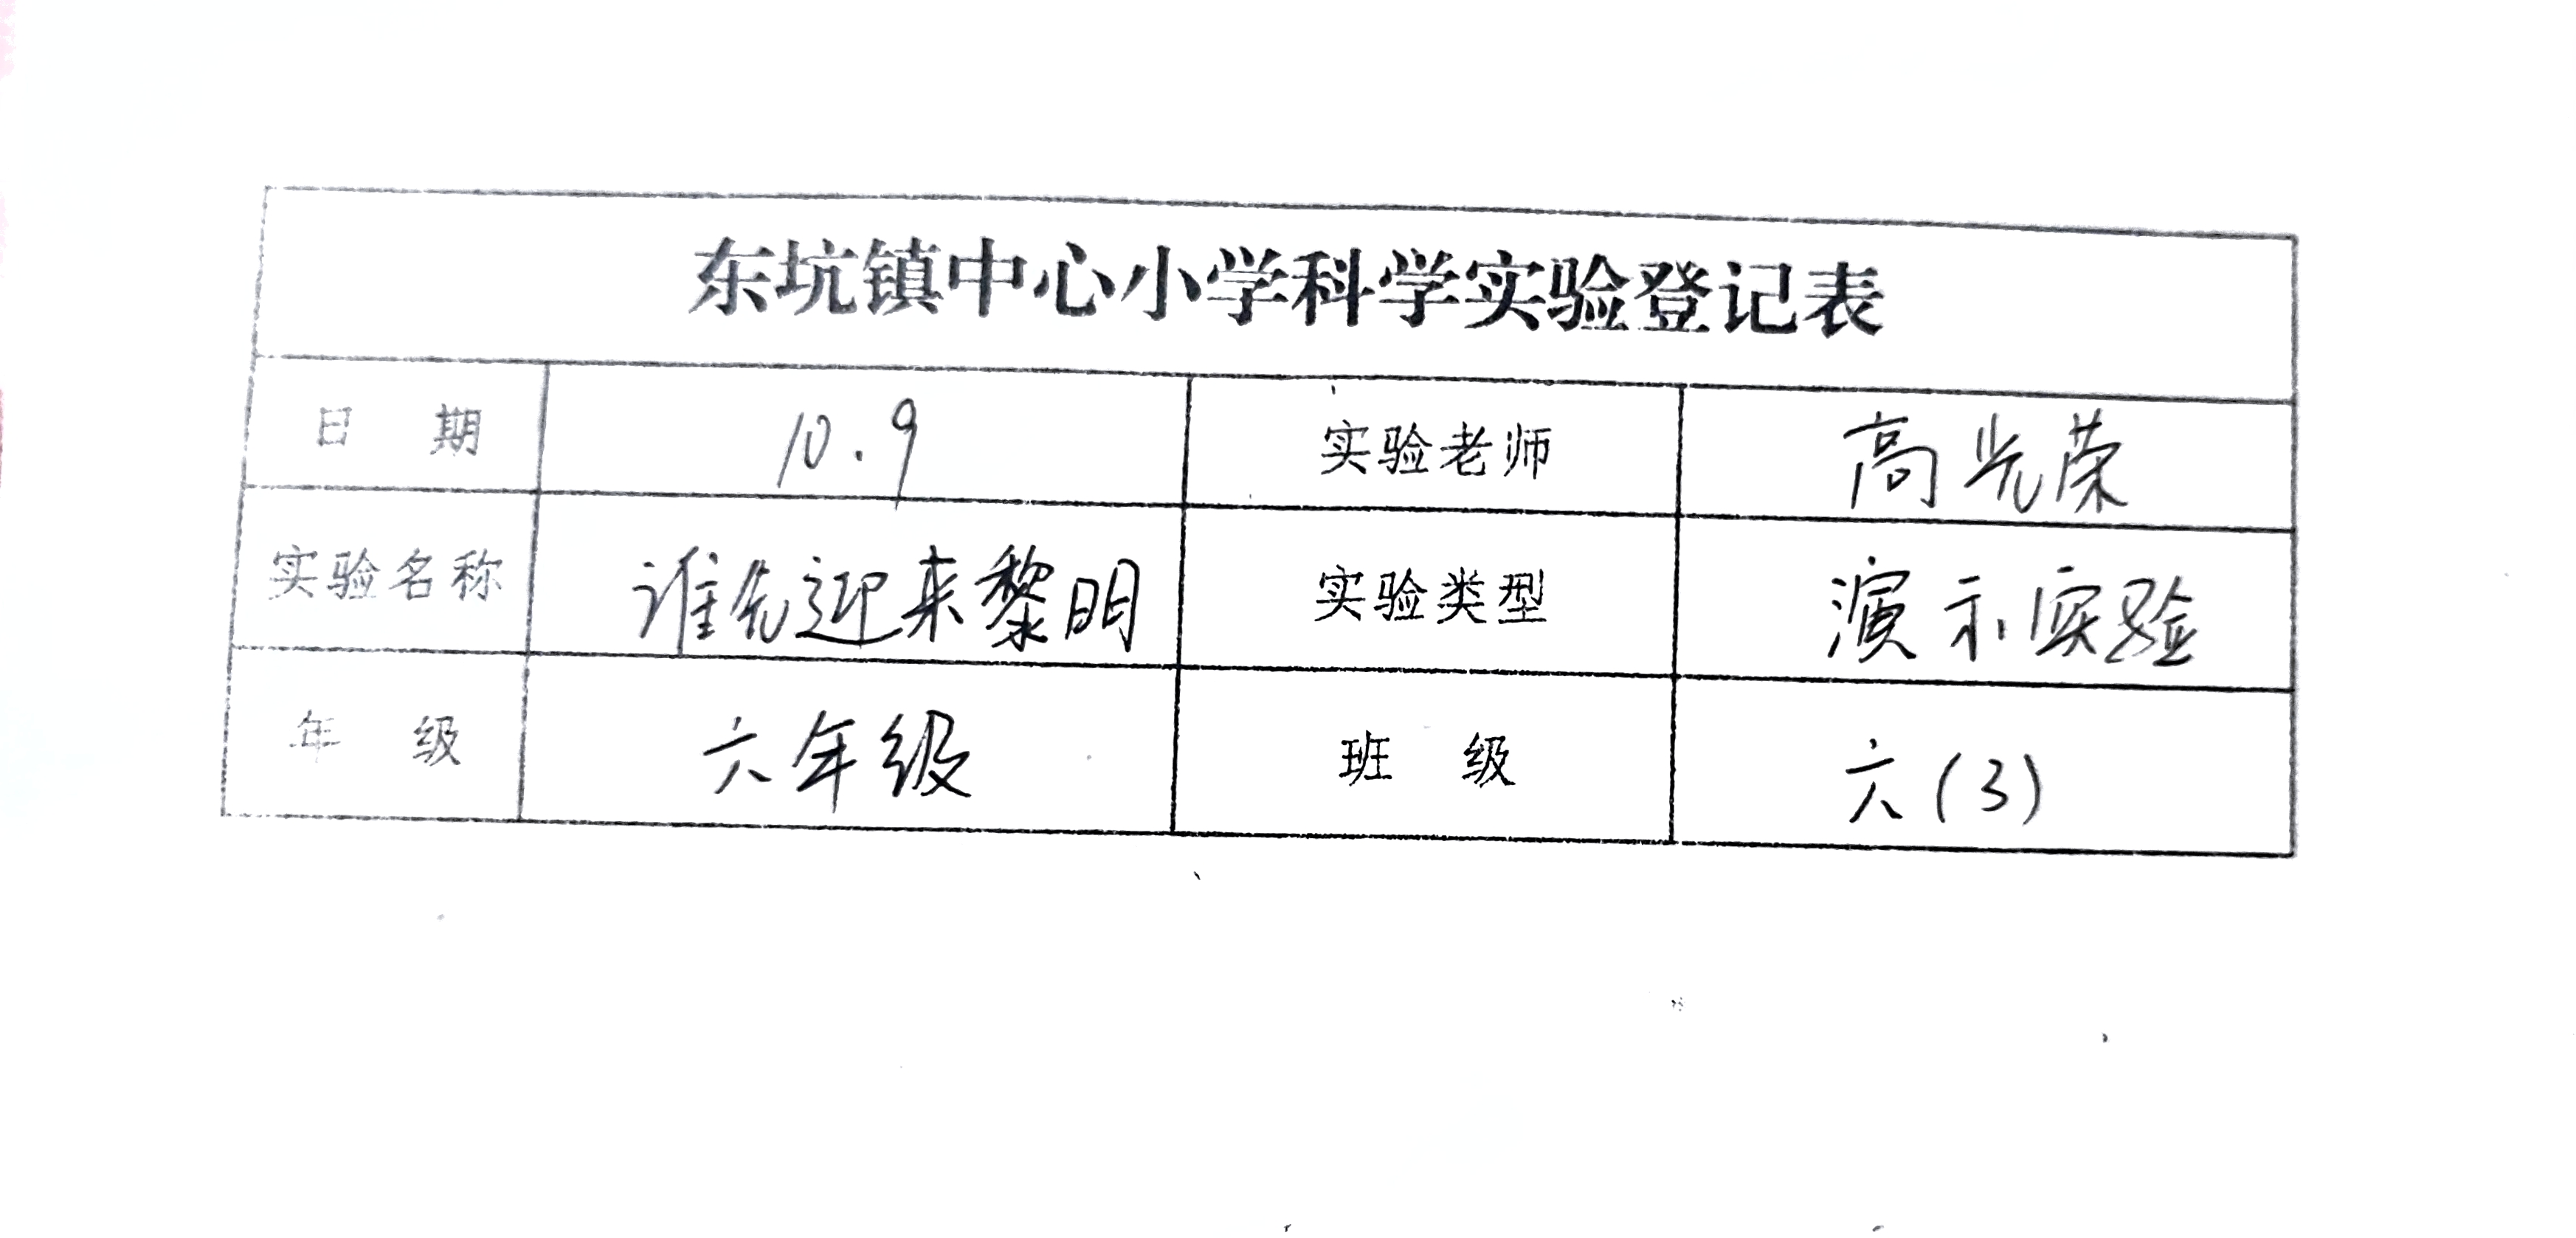 东坑镇中心小学科学实验登记表
日 期 10.9 实验老师 高光荣
实验名称 谁先迎来黎明 实验类型 演示实验
年 级 六年级 班 级 六(3)